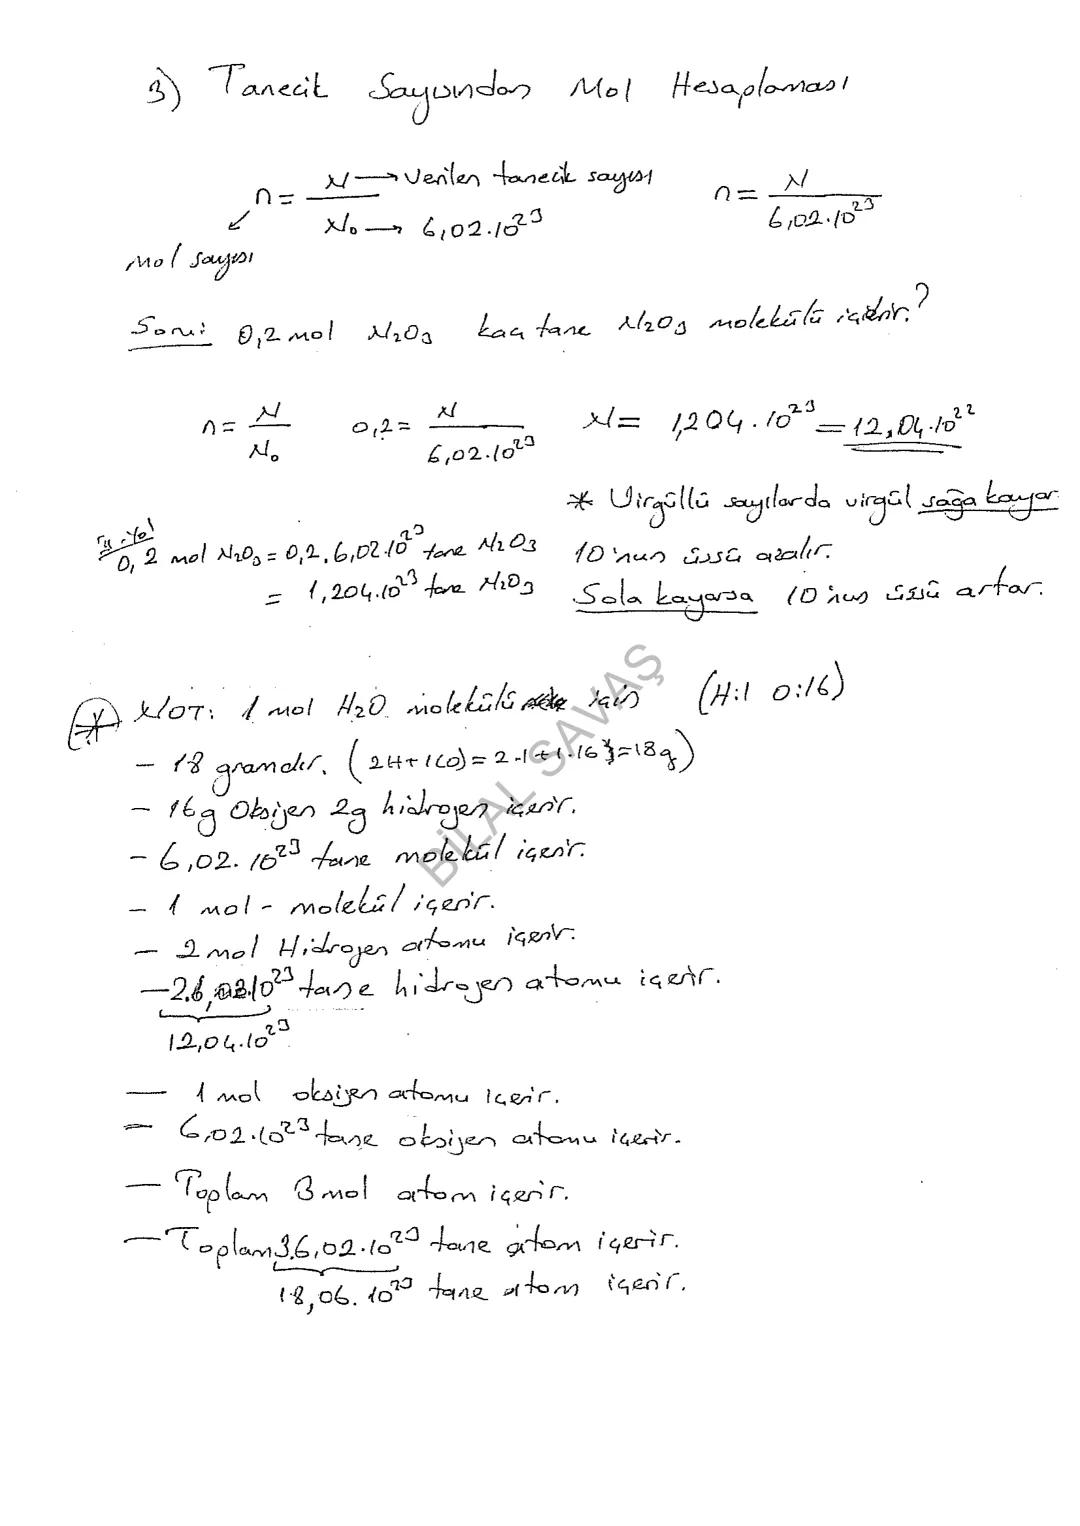 3) Tanecik Sayısından Mol Hesaplaması
n = N → Verilen tanecik sayısı / N₀ → 6,02.10²³
n = N / 6,02.10²³
mol sayısı
Soru: 0,2 mol N₂O₃ kaç tane N₂O₃ molekülü içerir?
n = N / N₀   0,2 = N / 6,02.10²³   N = 1,204.10²³ = 12,04.10²²
* Virgüllü sayılarda virgül sağa kayar
10'nun üssü azalır.
Sola kayarsa 10'nun üssü artar.
0,2 mol N₂O₃ = 0,2.6,02.10²³ tane N₂O₃
= 1,204.10²³ tane N₂O₃
* NOT: 1 mol H₂O molekülü için (H:1 O:16)
- 18 gramdır. (2H+1(O) = 2.1+1.16}=18g)
- 16g Oksijen 2g hidrojen içerir.
- 6,02.10²³ tane molekül içerir.
- 1 mol - molekül içerir.
- 2 mol Hidrojen atomu içerir.
- 2.6,02.10²³ tane hidrojen atomu içerir.
12,04.10²³
- 1 mol oksijen atomu içerir.
- 6,02.10²³ tane oksijen atomu içerir.
- Toplam 3 mol atom içerir.
- Toplam 3.6,02.10²³ tane atom içerir.
18,06.10²³ tane atom içerir.
BİLAL SAVAŞ